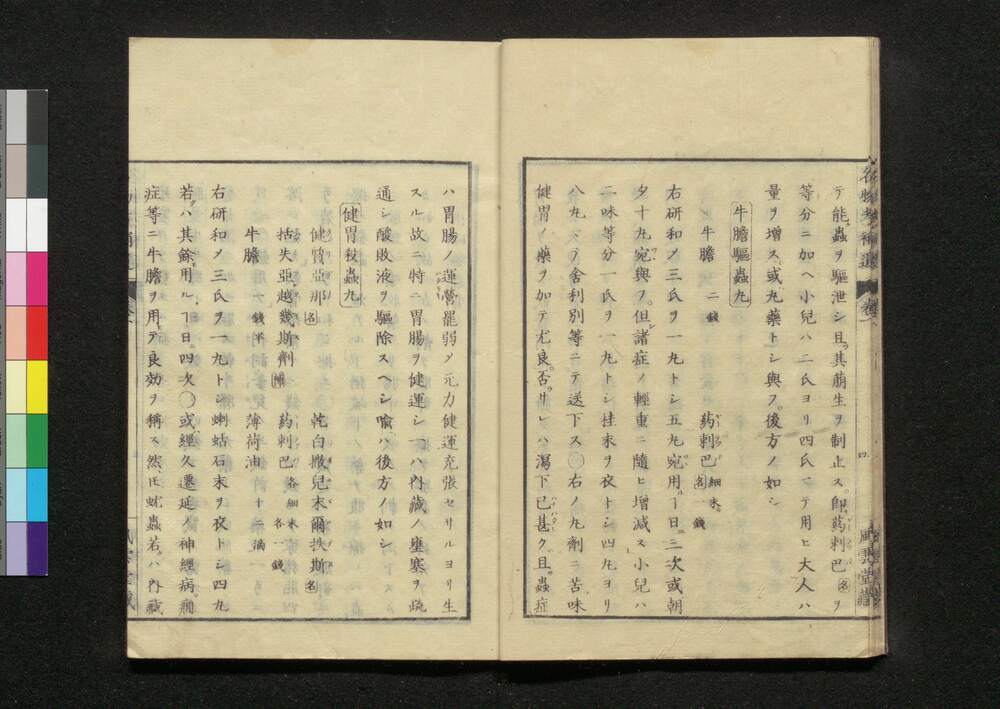 テ能蟲ヲ驅泄シ且其萠生ヲ制止ス即葯剌巴名ヲ
等分ニ加ヘ小兒ハ二氏ヨリ四氏マテ用ヒ大人ハ
量ヲ増ス或丸藥トシ與フ後方ノ如シ
牛膽驅蟲丸
牛膽 二錢 葯剌巴 細末名一錢
右研和〆三氏ヲ一丸トシ五丸宛用ルヿ日ニ三次或朝
夕十丸宛與フ但諸症ノ輕重ニ隨ヒ増減ス小兒ハ
二味等分一氏ヲ一丸トシ桂末ヲ衣トシ四丸ヨリ
八丸マテ舍利別等ニテ送下ス〇右ノ丸劑ニ苦味
健胃ノ藥ヲ加テ尤良否サレハ瀉下已甚ク且蟲症
ハ胃腸ノ運營罷弱〆元力健運充張セサルヨリ生
スル故ニ特ニ胃腸ヲ健運シ一ハ內藏ノ壅塞ヲ疏
通シ酸敗液ヲ驅除スヘシ喩ハ後方ノ如シ
健胃殺蟲丸
健質亞那名 乾白撒兒末爾扶斯名
括失亞越幾斯劑 葯剌巴 各細末各一錢
牛膽 錢半 薄荷油 十二滴
右研和〆三氏ヲ一丸トシ蜊蛄石末ヲ衣トシ四丸
若ハ其餘用ルヿ日ニ四次〇或經久遷延ノ神經病癇
症等ニ牛膽ヲ用テ良効ヲ稱ス然𪜈蚘蟲若ハ內藏